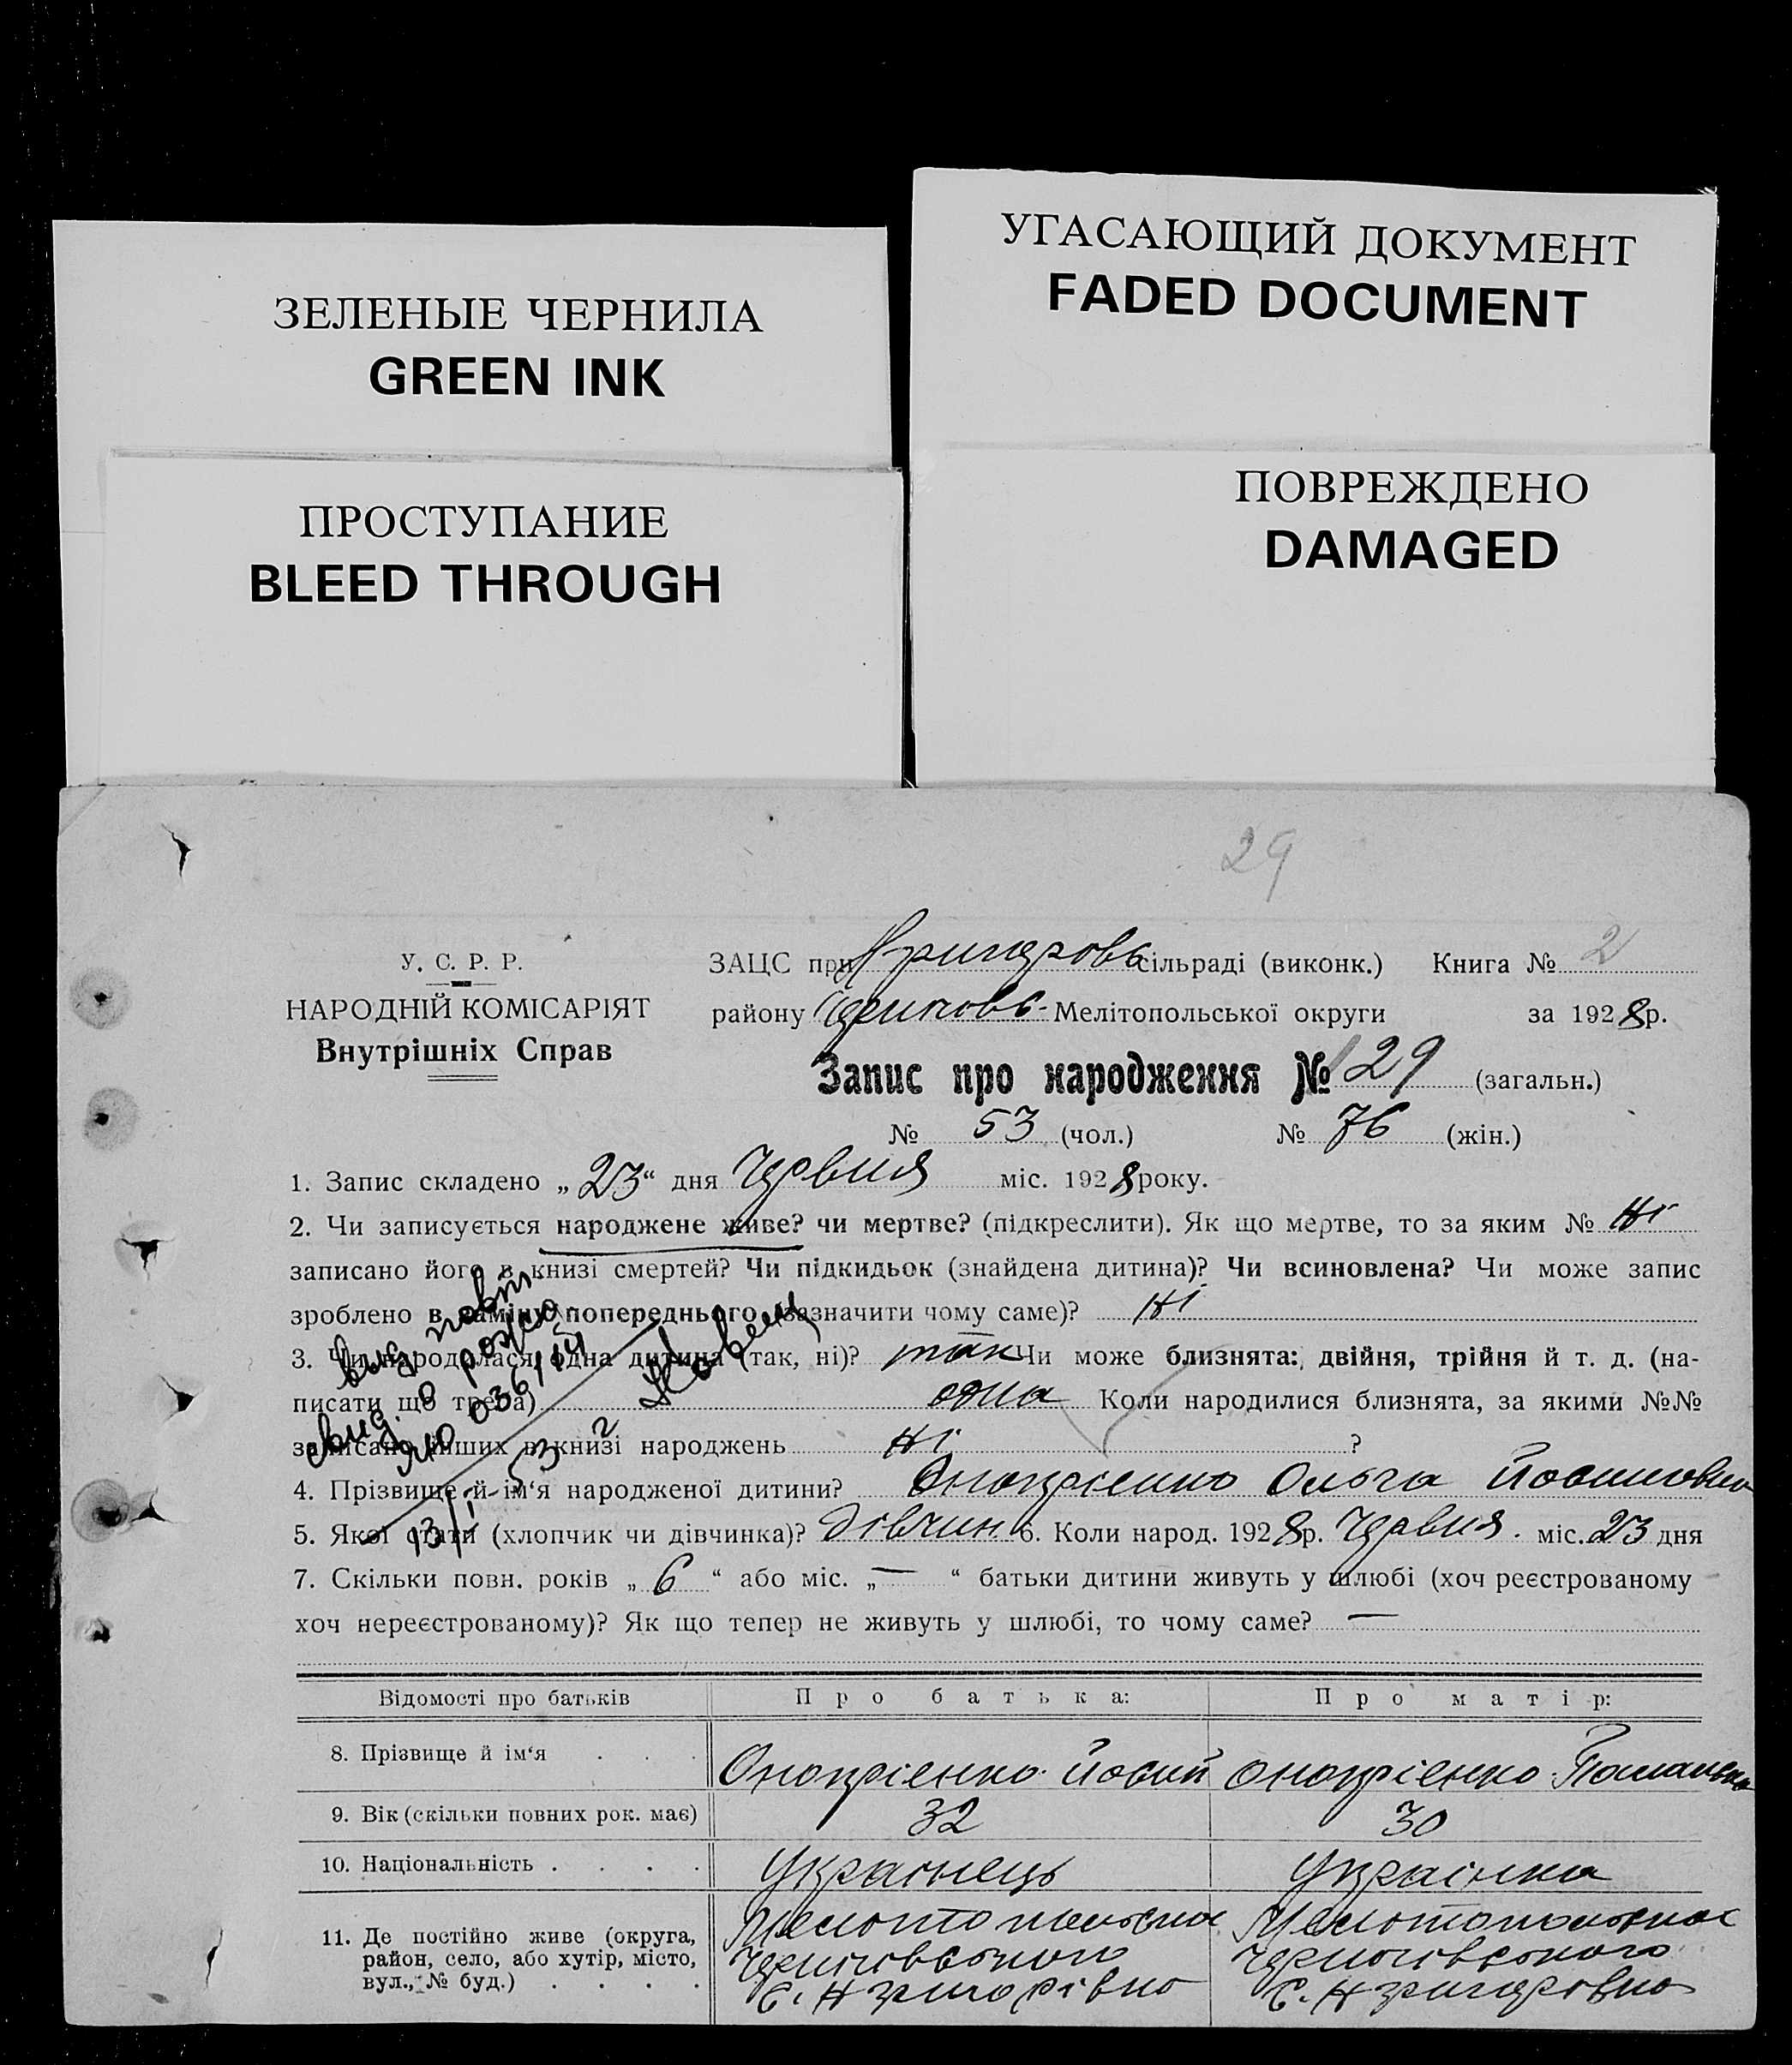 УГАСАЮЩИЙ ДОКУМЕНТ
FADED DOCUMENT
ЗЕЛЕНЫЕ ЧЕРНИЛА
GREEN INK
ПОВРЕЖДЕНО
DAMAGED
ПРОСТУПАНИЕ
BLEED THROUGH
29
У. С. Р. Р.
НАРОДНІЙ КОМІСАРІЯТ
Внутрішніх Справ
ЗАЦС при сільраді (виконк.) Книга № 2
району Мелітопольської округи за 1928 р.
Запис про народження № 129 (загальн.)
№ 53 (чол.) № 76 (жін.)
1. Запис складено „23“ дня Червня міс. 1928 року.
2. Чи записується народжене живе? чи мертве? (підкреслити). Як що мертве, то за яким № Ні
записано його в книзі смертей? Чи підкидьок (знайдена дитина)? Чи всиновлена? Чи може запис
зроблено в заміну попереднього (зазначити чому саме)? Ні
3. Чи народилася одна дитина (так, ні)? так Чи може близнята: двійня, трійня й т. д. (на-
писати що треба) одна Коли народилися близнята, за якими №№
записано інших в книзі народжень Ні ?
4. Прізвище й ім‘я народженої дитини? Онопрієнко Ольга
5. Якої статі (хлопчик чи дівчинка)? Дівчин. 6. Коли народ. 1928 р. Червня. міс. 23 дня
7. Скільки повн. років „6“ або міс. „—“ батьки дитини живуть у шлюбі (хоч реєстрованому
хоч нереєстрованому)? Як що тепер не живуть у шлюбі, то чому саме? —
Відомості про батьків Про батька: Про матір:
8. Прізвище й ім‘я . . . Онопрієнко Онопрієнко
9. Вік (скільки повних рок. має) 32 30
10. Національність . . . . Українець Українка
11. Де постійно живе (округа,
район, село, або хутір, місто,
вул., № буд.) . . . .